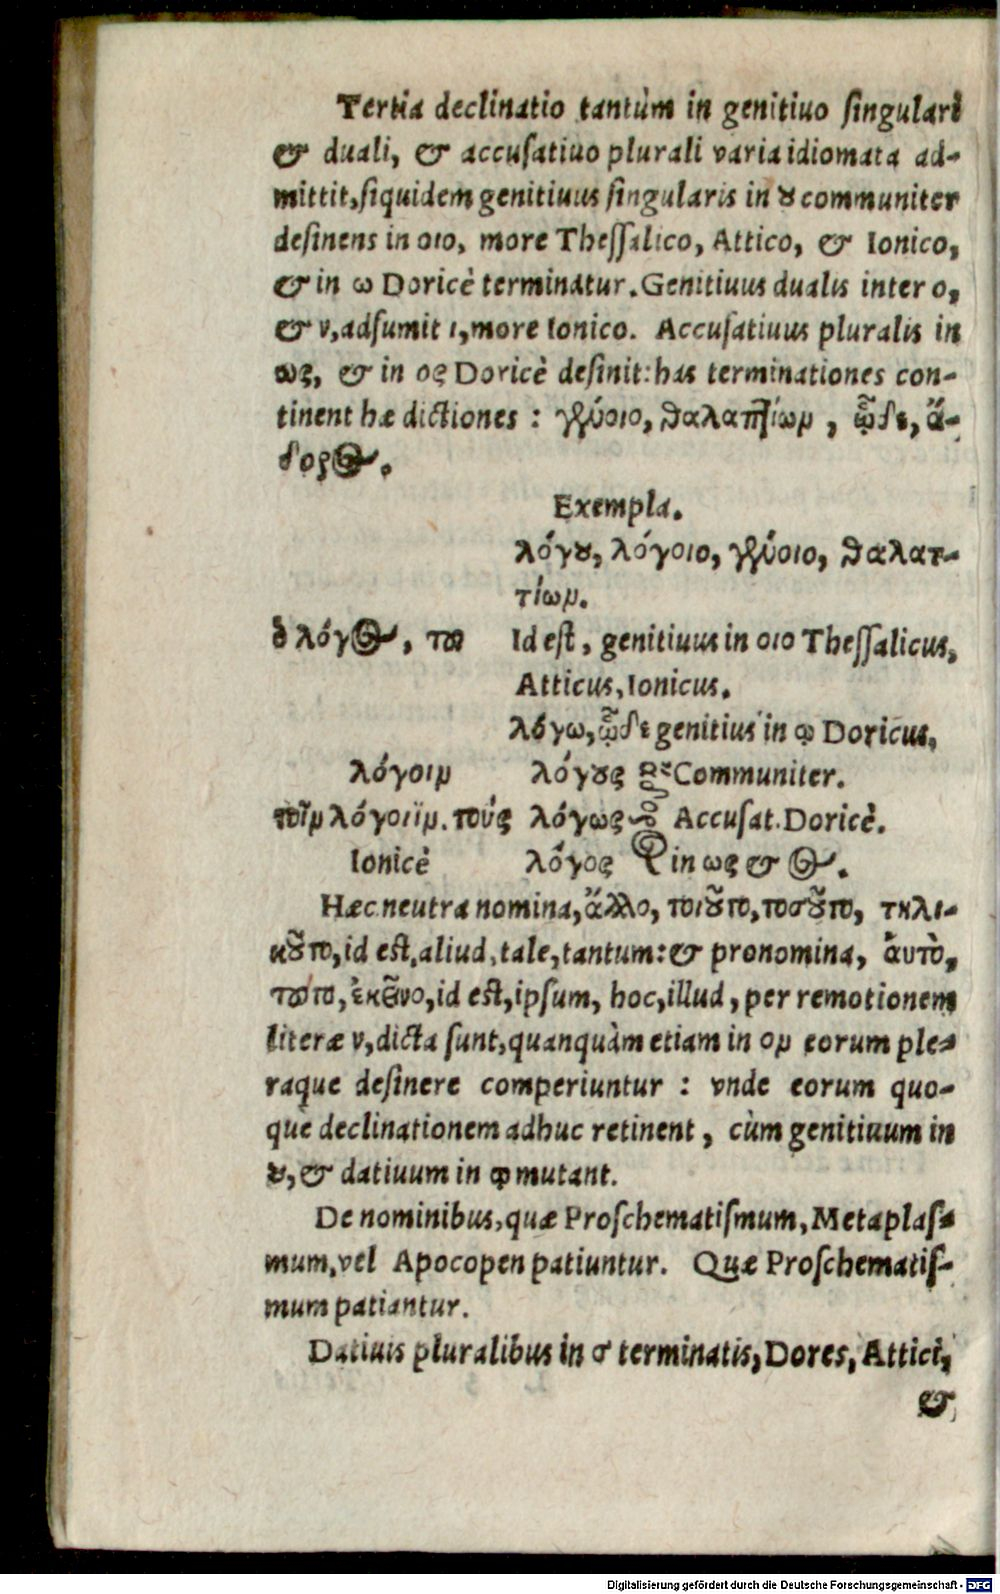 Tertia declinatio tantùm in genitiuo ſingulari
& duali, & accuſatiuo plurali varia idiomata ad-
mittit, ſiquidem genitiuus ſingularis in ȣ communiter
deſinens in οιο, more Theſſalico, Attico, & Ionico,
& in ω Doricè terminatur. Genitiuus dualis inter ο,
& ν, adſumit ι, more Ionico. Accuſatiuus pluralis in
ως, & in ος Doricè deſinit: has terminationes con-
tinent hæ dictiones :
Exempla.
λόγȣ, λόγοιο, ϑαλατ-
τίων.
ὁ λόγος, τȣ Id eſt, genitiuus in οιο Theſſalicus,
Atticus, Ionicus.
λόγω, genitius in ῳ Doricus,
λόγοιν λόγȣς Communiter.
τοῖν λόγοιϊν. τοὺς λόγως Accuſat. Doricè.
Ionicè λόγος in ως & ος.
Hæc neutra nomina, ἄλλο, τοιȣ͂το, τοσȣ͂το, τηλι-
κȣ͂το, id eſt, aliud, tale, tantum: & pronomina, ἀυτὸ,
τȣτο, ἐκεῖνο, id eſt, ipſum, hoc, illud, per remotionem
literæ ν, dicta ſunt, quanquàm etiam in ον eorum ple-
raque deſinere comperiuntur : vnde eorum quo-
que declinationem adhuc retinent, cùm genitiuum in
ȣ, & datiuum in ῳ mutant.
De nominibus, quæ Proſchematiſmum, Metaplaſ-
mum, vel Apocopen patiuntur. Quæ Proſchematiſ-
mum patiantur.
Datiuis pluralibus in σ terminatis, Dores, Attici,
&
Digitalisierung gefördert durch die Deutsche Forschungsgemeinschaft - DFG